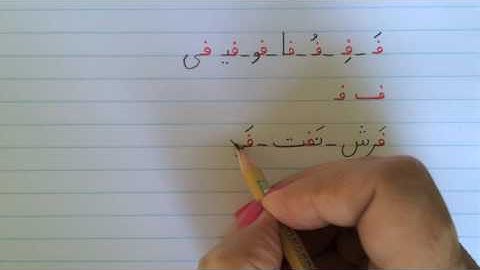 فَ ـ فِ ـ فُ ـ فا ـ فو ـ فیـ فی
ف فـ
فَرش ـ نَفت ـ فَـ